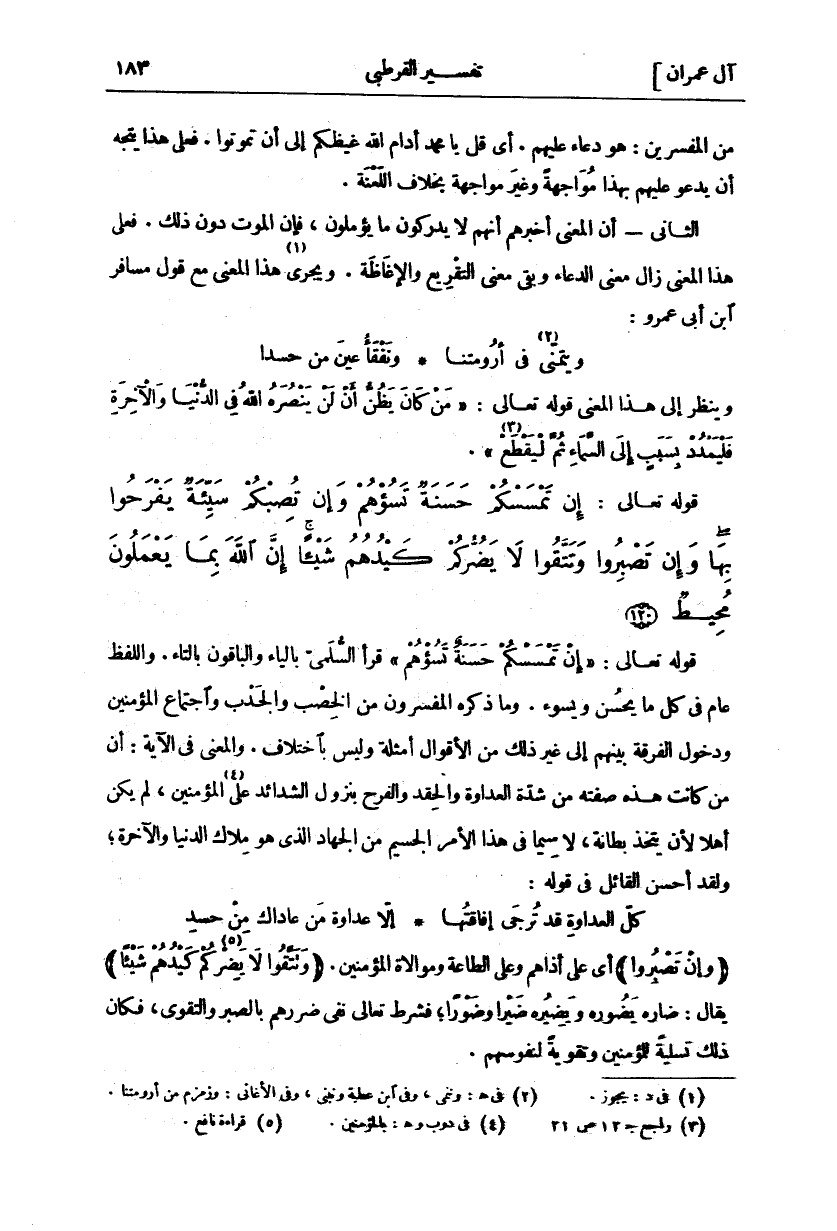 آل عمران ] تفسير القرطبي ١٨٣
من المفسرين : هو دعاء عليهم . أى قل يا محمد أدام الله غيظكم إلى أن تموتوا . فعلى هذا يتجه
أن يدعو عليهم بهذا مُوَاجهةً وغيرَ مواجهة بخلاف اللَّعْنَة .
الثـانى — أن المعنى أخبرهم أنهم لا يدركون ما يؤملون ، فإن الموت دون ذلك . فعلى
هذا المعنى زال معنى الدعاء وبقى معنى التقْرِيع والإغَاظَة . ويجرى (١) هذا المعنى مع قول مسافر
آبن أبى عمرو :
ويتمنّى (٢) فى أرُومتنـا * ونَفْقَأُ عينَ من حسدا
وينظر إلى هـذا المعنى قوله تعـالى : « مَنْ كَانَ يَظُنُّ أَنْ لَنْ يَنْصُرَهُ اللهُ فِى الدُّنْيَـا وَالْآخِرَةِ
فَلْيَمْدُدْ بِسَبَبٍ إِلَى السَّمَاءِ ثُمَّ لْيَقْطَعْ (٣) » .
قوله تعـالى : إِن تَمْسَسْكُمْ حَسَنَةٌ تَسُؤْهُمْ وَإِن تُصِبْكُمْ سَيِّئَةٌ يَفْرَحُوا
بِهَا وَإِن تَصْبِرُوا وَتَتَّقُوا لَا يَضُرُّكُمْ كَيْدُهُمْ شَيْئًا إِنَّ ٱللَّهَ بِمَا يَعْمَلُونَ
مُحِيطٌ (١٢٠)
قوله تعـالى : « إِنْ تَمْسَسْكُمْ حَسَنَةٌ تَسُؤْهُمْ » قرأ السُّلَمىّ بالياء والباقون بالتاء . واللفظ
عام فى كل ما يحسُن ويسوء . وما ذكره المفسرون من الخِصْب والجَدْب وٱجتماع المؤمنين
ودخول الفرقة بينهم إلى غير ذلك من الأقوال أمثلة وليس بٱختلاف . والمعنى فى الآية : أن
من كانت هـذه صفته من شدّة العداوة والحِقد والفرح بنزول الشدائد على (٤) المؤمنين ، لم يكن
أهلا لأن يتخذ بطانة ، لا سِيما فى هذا الأمر الجسيم من الجهاد الذى هو مِلاك الدنيا والآخرة ؛
ولقد أحسن القائل فى قوله :
كلّ العداوة قد تُرجَى إفاقتُهـا * إلّا عداوة مَن عاداك مِنْ حسدِ
﴿ وإنْ تَصْبِرُوا ﴾ أى على أذاهم وعلى الطاعة وموالاة المؤمنين . ﴿ وَتَتَّقُوا لَا يَضِركُمْ (٥) كَيْدُهُمْ شَيْئًا ﴾
يقال : ضاره يَضُوره ويَضِيره ضَيْرا وضَوْرًا ؛ فشرط تعالى نفى ضررهم بالصبر والتقوى ، فكان
ذلك تسليةً للمؤمنين وتقوية لنفوسهم .
(١) فى د : يجوز . (٢) فى ه : وننمى ، وفى ٱبن عطية ونبنى ، وفى الأغانى : وزمزم من أرومتنا .
(٣) راجع ج ١٢ ص ٢١ (٤) فى د وب و ه : بالمؤمنين . (٥) قراءة نافع .